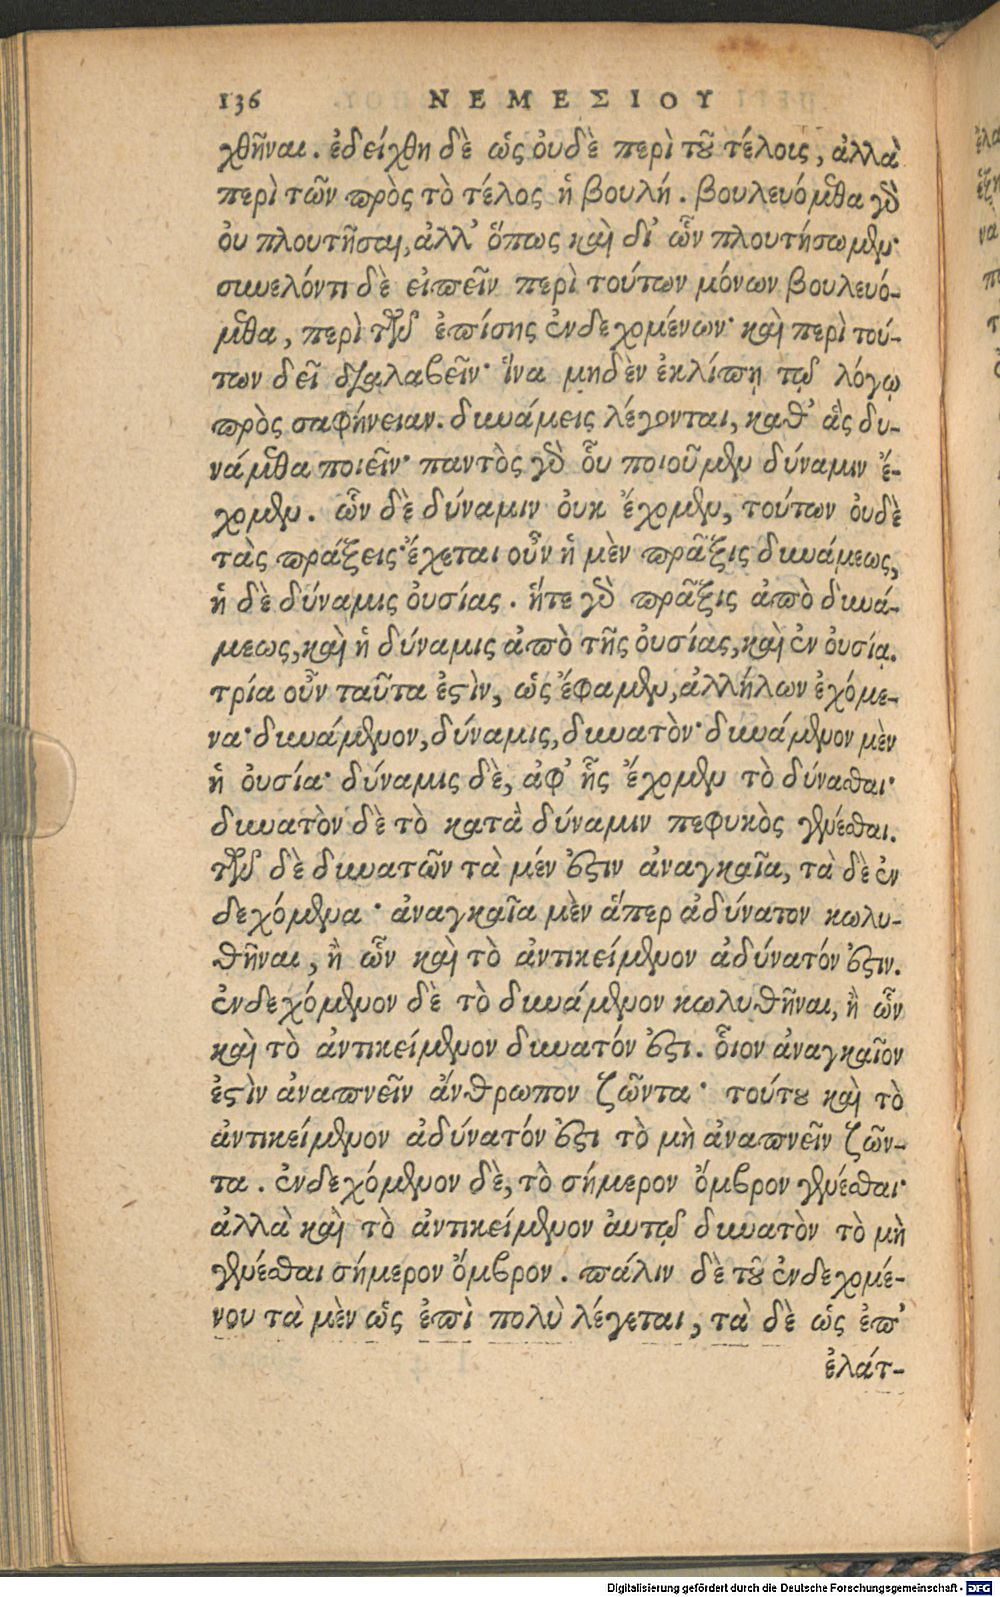 136 ΝΕΜΕΣΙΟΥ
χθῆναι. ἐδείχθη δὲ ὡς οὐδὲ περὶ τοῦ τέλοις, ἀλλὰ
περὶ τῶν πρὸς τὸ τέλος ἡ βουλή. βουλευόμεθα γὰρ
οὐ πλουτῆσαι, ἀλλ' ὅπως καὶ δι' ὧν πλουτήσωμεν·
συνελόντι δὲ εἰπεῖν περὶ τούτων μόνων βουλευό-
μεθα, περὶ τῶν ἐπίσης ἐνδεχομένων· καὶ περὶ τού-
των δεῖ διαλαβεῖν· ἵνα μηδὲν ἐκλίπῃ τῷ λόγῳ
πρὸς σαφήνειαν. δυνάμεις λέγονται, καθ' ἃς δυ-
νάμεθα ποιεῖν· παντὸς γὰρ οὗ ποιοῦμεν δύναμιν ἔ-
χομεν. ὧν δὲ δύναμιν οὐκ ἔχομεν, τούτων οὐδὲ
τὰς πράξεις· ἔχεται οὖν ἡ μὲν πρᾶξις δυνάμεως,
ἡ δὲ δύναμις οὐσίας. ἥτε γὰρ πρᾶξις ἀπὸ δυνά-
μεως, καὶ ἡ δύναμις ἀπὸ τῆς οὐσίας, καὶ ἐν οὐσίᾳ.
τρία οὖν ταῦτα ἐστὶν, ὡς ἔφαμεν, ἀλλήλων ἐχόμε-
να· δυνάμενον, δύναμις, δυνατὸν· δυνάμενον μὲν
ἡ οὐσία· δύναμις δὲ, ἀφ' ἧς ἔχομεν τὸ δύνασθαι·
δυνατὸν δὲ τὸ κατὰ δύναμιν πεφυκὸς γενέσθαι.
τῶν δὲ δυνατῶν τὰ μέν ἐστιν ἀναγκαῖα, τὰ δὲ ἐν
δεχόμενα· ἀναγκαῖα μὲν ἅπερ ἀδύνατον κωλυ-
θῆναι, ἢ ὧν καὶ τὸ ἀντικείμενον ἀδύνατόν ἐστιν.
ἐνδεχόμενον δὲ τὸ δυνάμενον κωλυθῆναι, ἢ ὧν
καὶ τὸ ἀντικείμενον δυνατόν ἐστι. οἷον ἀναγκαῖον
ἐστὶν ἀναπνεῖν ἄνθρωπον ζῶντα· τούτου καὶ τὸ
ἀντικείμενον ἀδύνατόν ἐστι τὸ μὴ ἀναπνεῖν ζῶν-
τα. ἐνδεχόμενον δὲ, τὸ σήμερον ὄμβρον γενέσθαι·
ἀλλὰ καὶ τὸ ἀντικείμενον αὐτῷ δυνατὸν τὸ μὴ
γενέσθαι σήμερον ὄμβρον. πάλιν δὲ τοῦ ἐνδεχομέ-
νου τὰ μὲν ὡς ἐπὶ πολὺ λέγεται, τὰ δὲ ὡς ἐπ'
ἐλάτ-
Digitalisierung gefördert durch die Deutsche Forschungsgemeinschaft - DFG